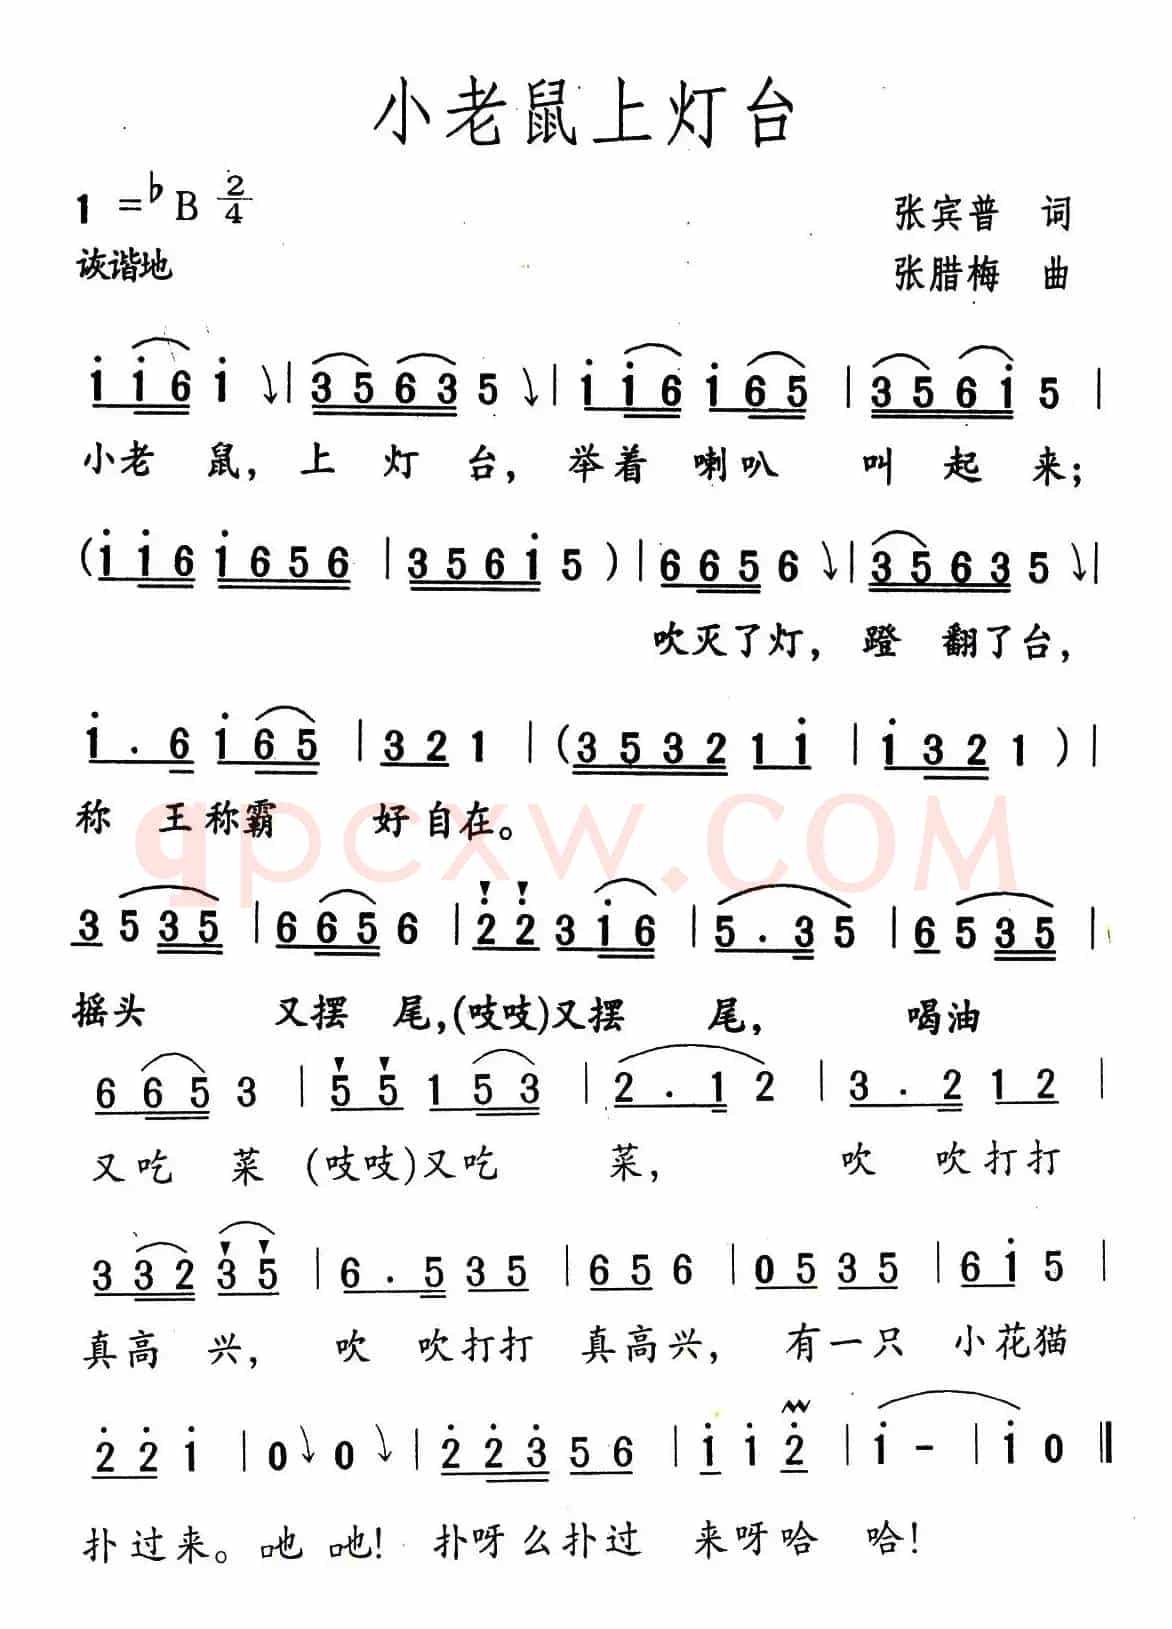 小老鼠上灯台
1 =♭B 2/4
张宾普 词
诙谐地
张腊梅 曲
i i6 i ↘ | 3563 5 ↘ | i i6 i 65 | 356i 5 |
小老 鼠, 上 灯 台, 举着 喇叭 叫 起 来;
( i i6 i656 | 356i 5 ) | 6 65 6 ↘ | 3563 5 ↘ |
吹灭了灯, 蹬 翻了台,
i . 6 i 65 | 32 1 | ( 3532 1 i | i 32 1 ) |
称 王称霸 好自在。
qpcxw.COM
3 5 35 | 6 65 6 | 2 2 3 i6 | 5 . 3 5 | 6 5 35 |
摇头 又摆 尾,(吱吱)又摆 尾, 喝油
6 65 3 | 5 5 1 53 | 2 . 1 2 | 3 . 2 1 2 |
又吃 菜 (吱吱)又吃 菜, 吹 吹打打
3 32 3 5 | 6 . 5 3 5 | 6 5 6 | 0 5 3 5 | 6 i 5 |
真高 兴, 吹 吹打打 真高兴, 有一只 小花猫
2 2 i | 0 ↘ 0 ↘ | 2 23 5 6 | i i 2 | i - | i 0 ‖
扑过来。吔 吔! 扑呀么扑过 来呀哈 哈!